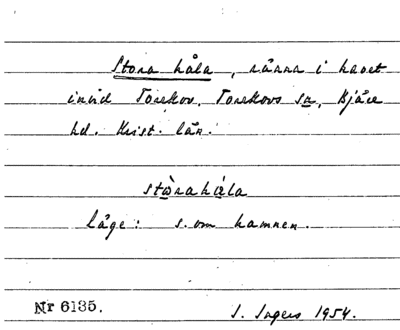 Stora håla, ränna i havet
invid Torekov, Torekovs sn, Bjäre
hd. Krist. län.
stòrahála
läge: s. om hamnen.
Nr 6135.
I. Ingers 1954.